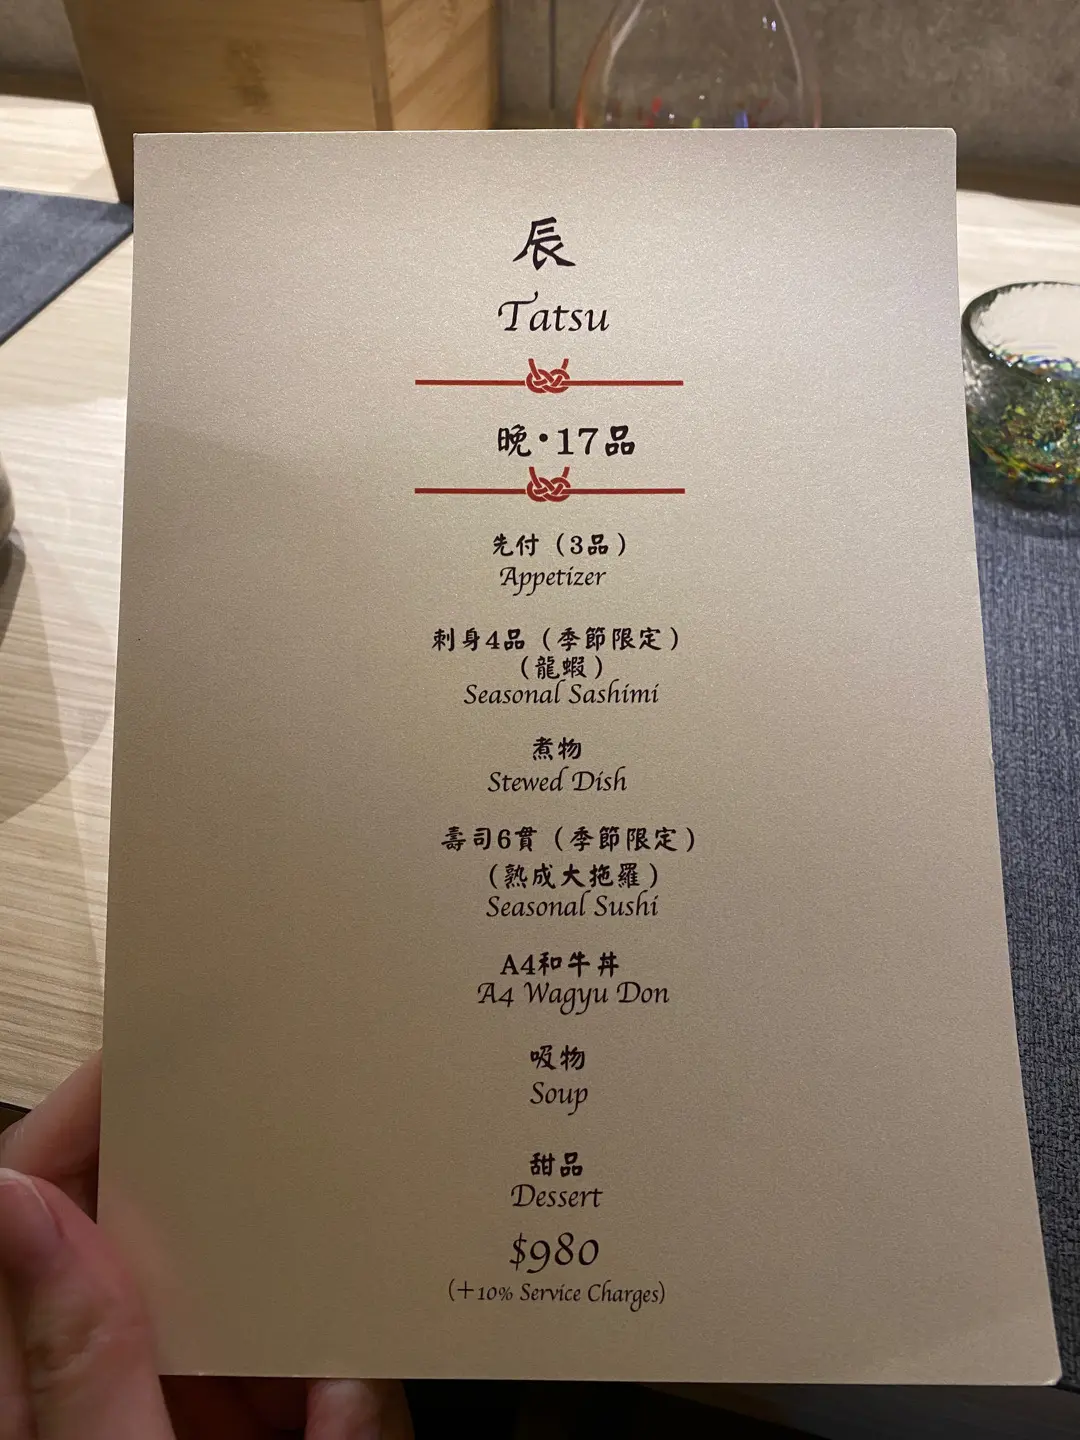 辰
Tatsu
晚・17品
先付（3品）
Appetizer
刺身4品（季節限定）
（龍蝦）
Seasonal Sashimi
煮物
Stewed Dish
壽司6貫（季節限定）
（熟成大拖羅）
Seasonal Sushi
A4和牛丼
A4 Wagyu Don
吸物
Soup
甜品
Dessert
$980
(+10% Service Charges)